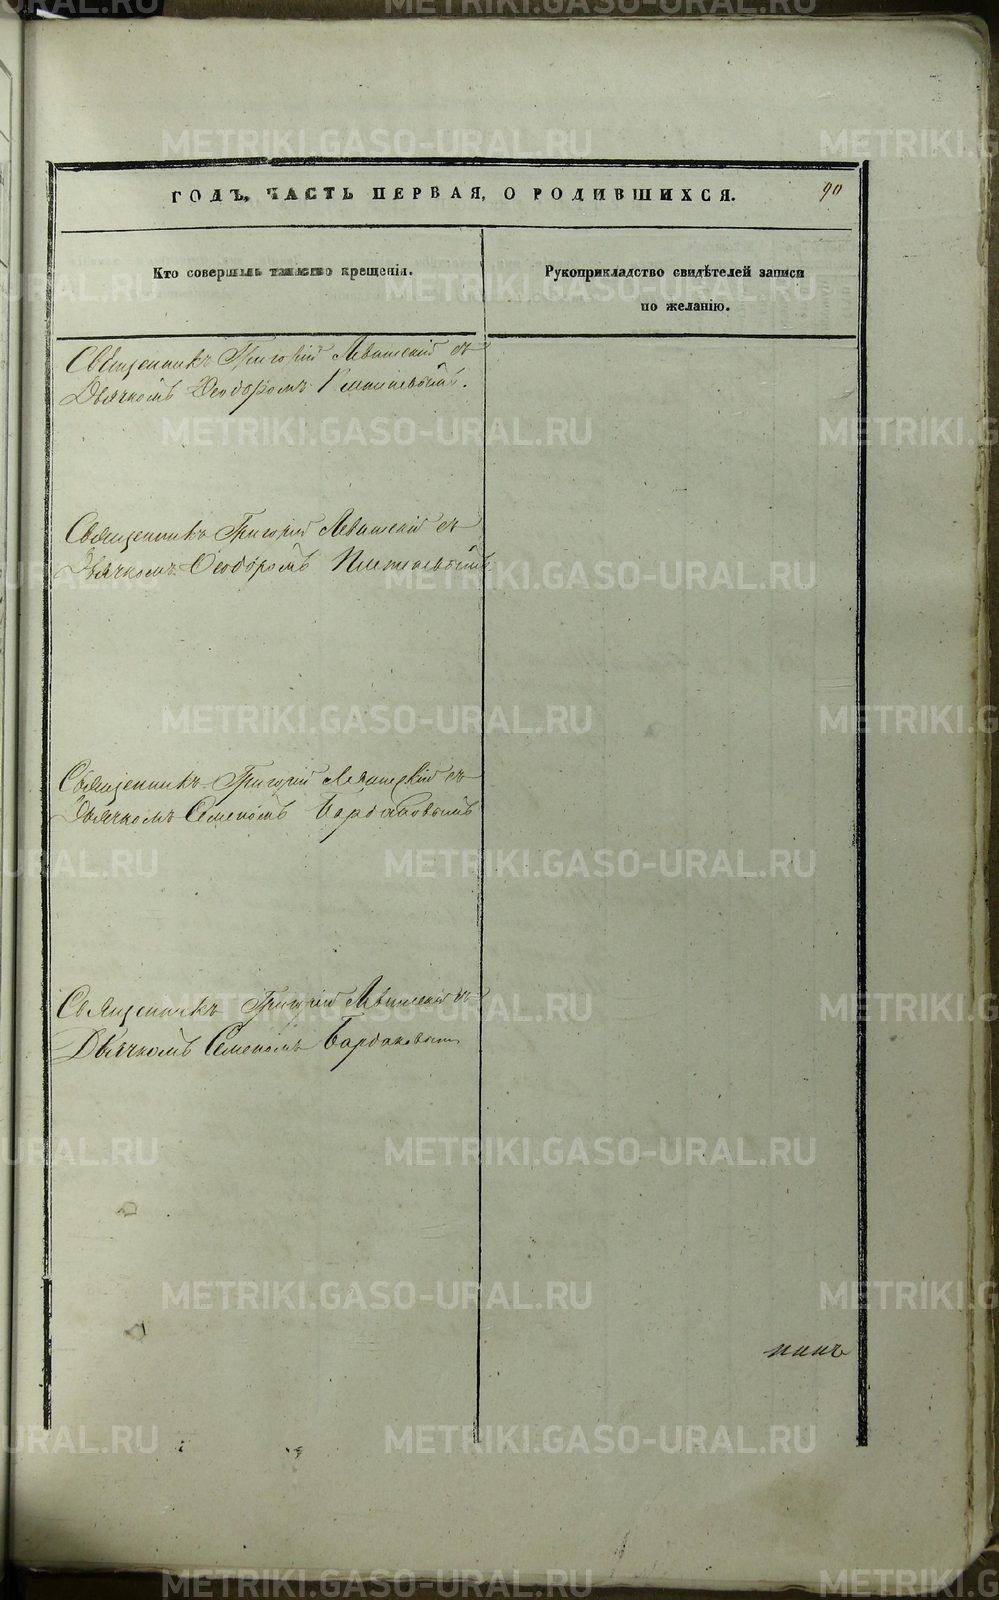 ГОДЪ, ЧАСТЬ ПЕРВАЯ, О РОДИВШИХСЯ. 90
Кто совершилъ таинство крещенія.
Рукоприкладство свидѣтелей записи
по желанію.
Священникъ Григорій Левитскій съ
Дьячкомъ Ѳеодоромъ
Священникъ Григорій Левитскій съ
Дьячкомъ Ѳеодоромъ
Священникъ Григорій Левитскій съ
Дьячкомъ Семеномъ Бардаковымъ
Священникъ Григорій Левитскій съ
Дьячкомъ Семеномъ Бардаковымъ
METRIKI.GASO-URAL.RU